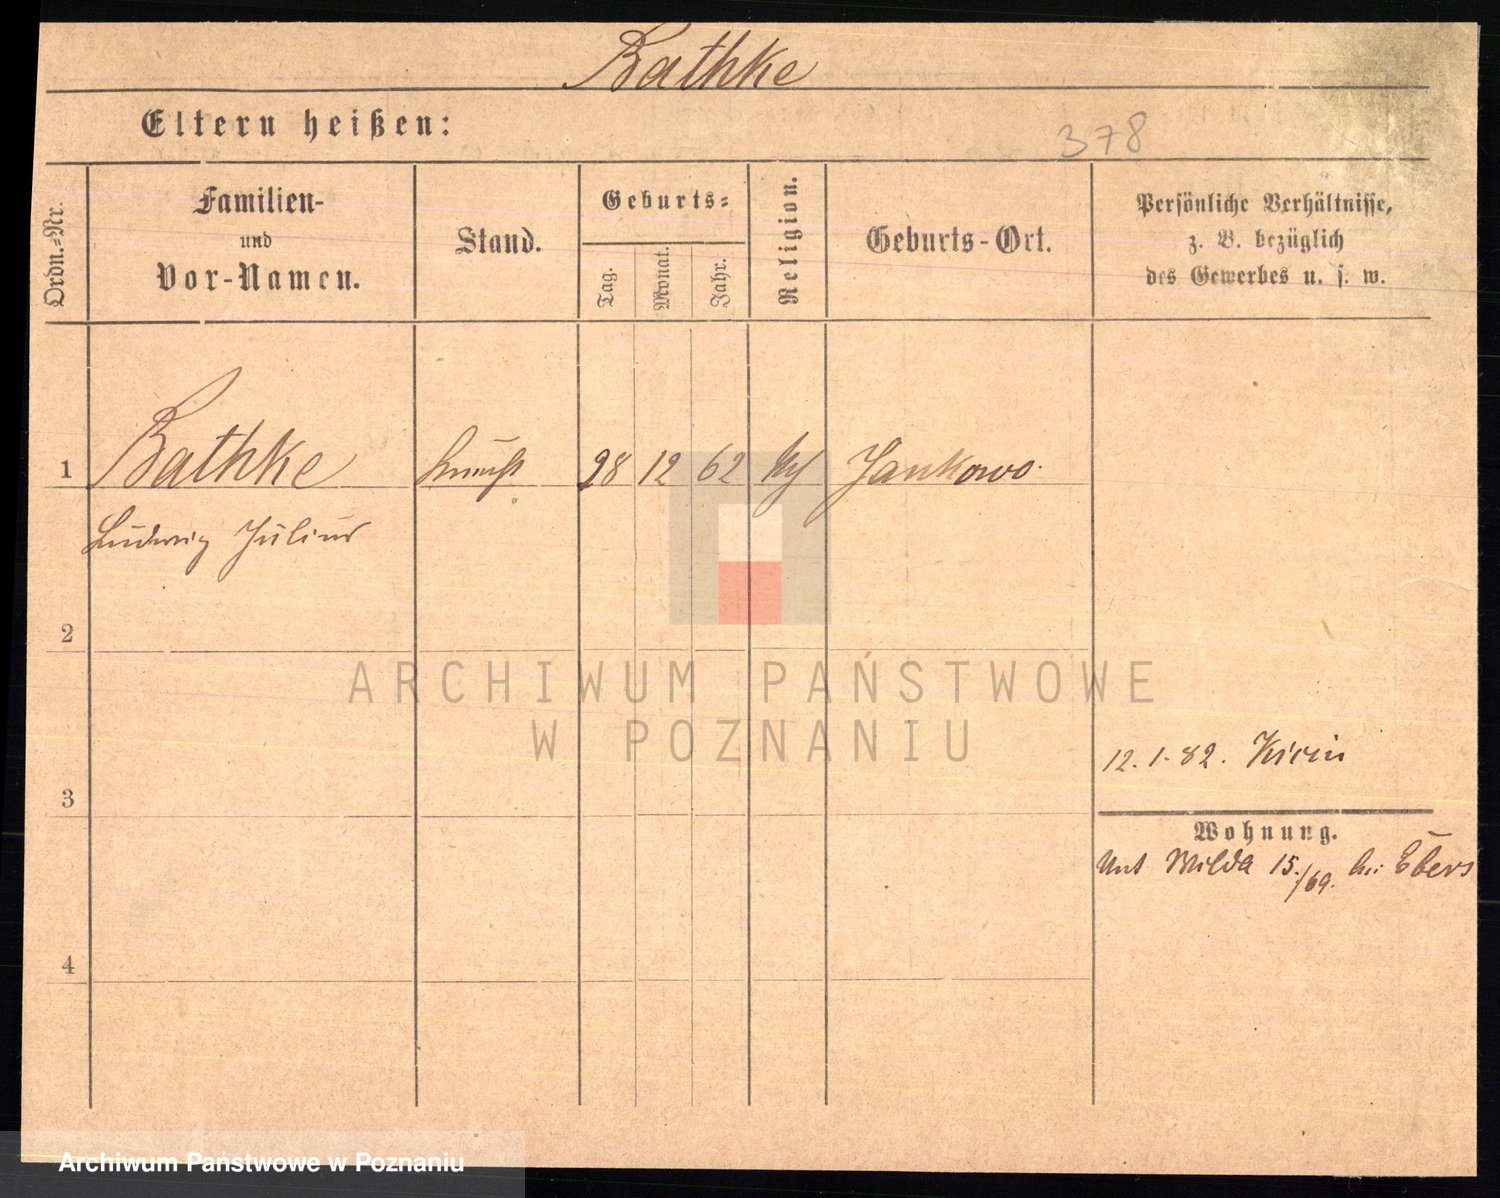 Bathke
Eltern heißen:
378
Ordn.=Nr.
Familien-
und
Vor-Namen.
Stand.
Geburts=
Tag.
Monat.
Jahr.
Religion.
Geburts-Ort.
Persönliche Verhältnisse,
z. B. bezüglich
des Gewerbes u. s. w.
1
Bathke
28 12 62
Jankowo.
Ludwig Julius
2
ARCHIWUM PAŃSTWOWE
W POZNANIU
12. 1. 82.
3
Wohnung.
Unt Wilda 15./69. bei Ebers
4
Archiwum Państwowe w Poznaniu